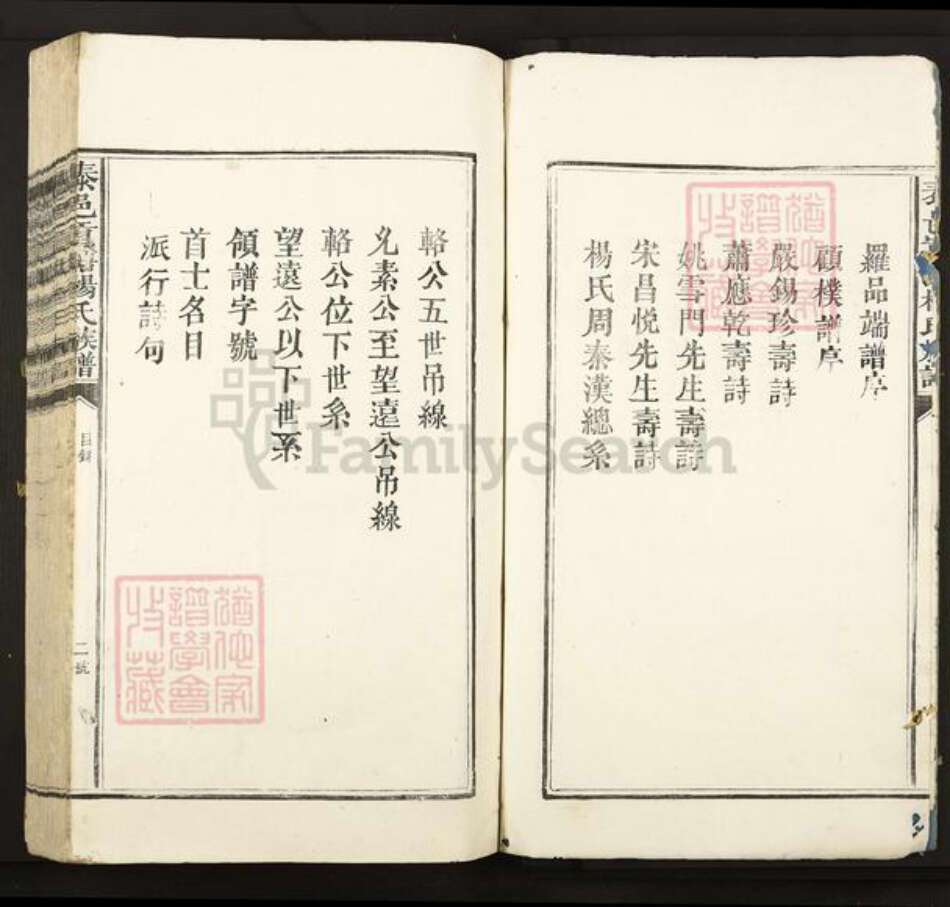 羅品端譜序
顧樸譜序
嚴錫珍壽詩
蕭應乾壽詩
姚雪門先生壽詩
宋昌悅先生壽詩
楊氏周秦漢總系
輅公五世吊線
允素公至望遠公吊線
輅公位下世系
望遠公以下世系
領譜字號
首士名目
派行詩句
楊氏族譜
目錄
二號
猶他家譜學會收藏
猶他家譜學會收藏
FamilySearch